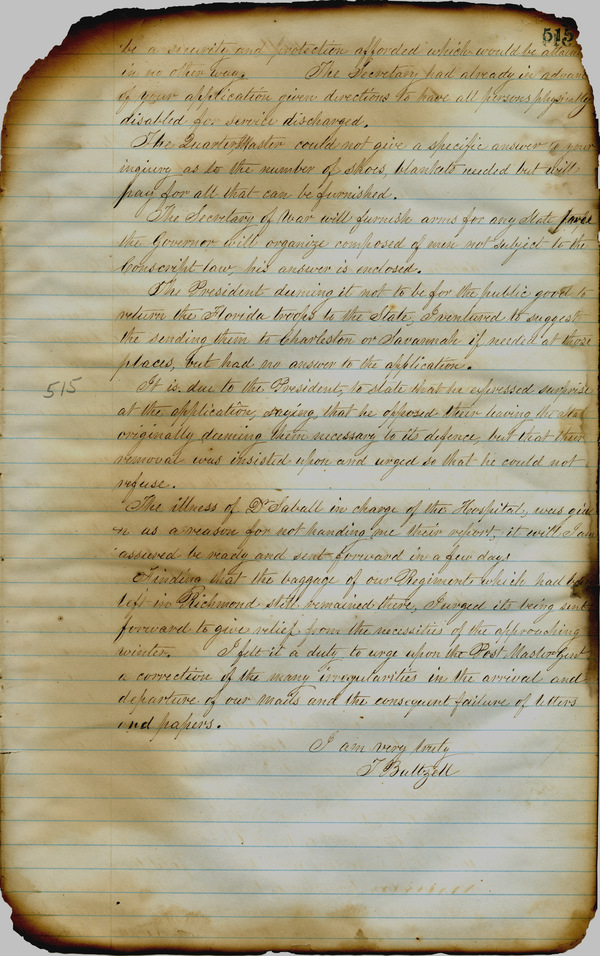 515
be a security and protection afforded which would be attain
in no other way. The Secretary had already in advan
of your application given directions to have all persons physically
disabled for service discharged.
The QuarterMaster could not give a specific answer to your
inquiry as to the number of shoes, blankets needed but will
pay for all that can be furnished.
The Secretary of War will furnish arms for any State force
the Governor will organize composed of men not subject to the
Conscript law, his answer is enclosed.
The President deeming it not to be for the public good to
return the Florida troops to the State, I ventured to suggest
the sending them to Charleston or Savannah if needed at those
places, but had no answer to the application.
515
It is due to the President, to state that he expressed surprise
at the application, saying, that he opposed their leaving the State
originally deeming them necessary to its defence, but that their
removal was insisted upon and urged so that he could not
refuse.
The illness of Dr in charge of the Hospital, was give
as a reason for not handing me their report, it will I am
assured be ready and sent forward in a few days
Finding that the baggage of our Regiments which had been
left in Richmond still remained there, I urged its being sent
forward to give relief from the necessities of the approaching
winter. I felt it a duty to urge upon the Post Master Genl
a correction of the many irregularities in the arrival and
departure of our mails and the consequent failure of letters
and papers.
I am very truly
T Baltzell